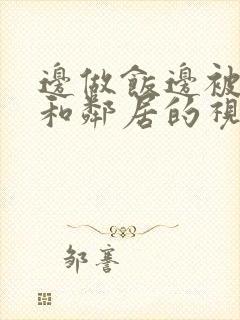 邊做飯邊被
和鄰居的視
邹謇